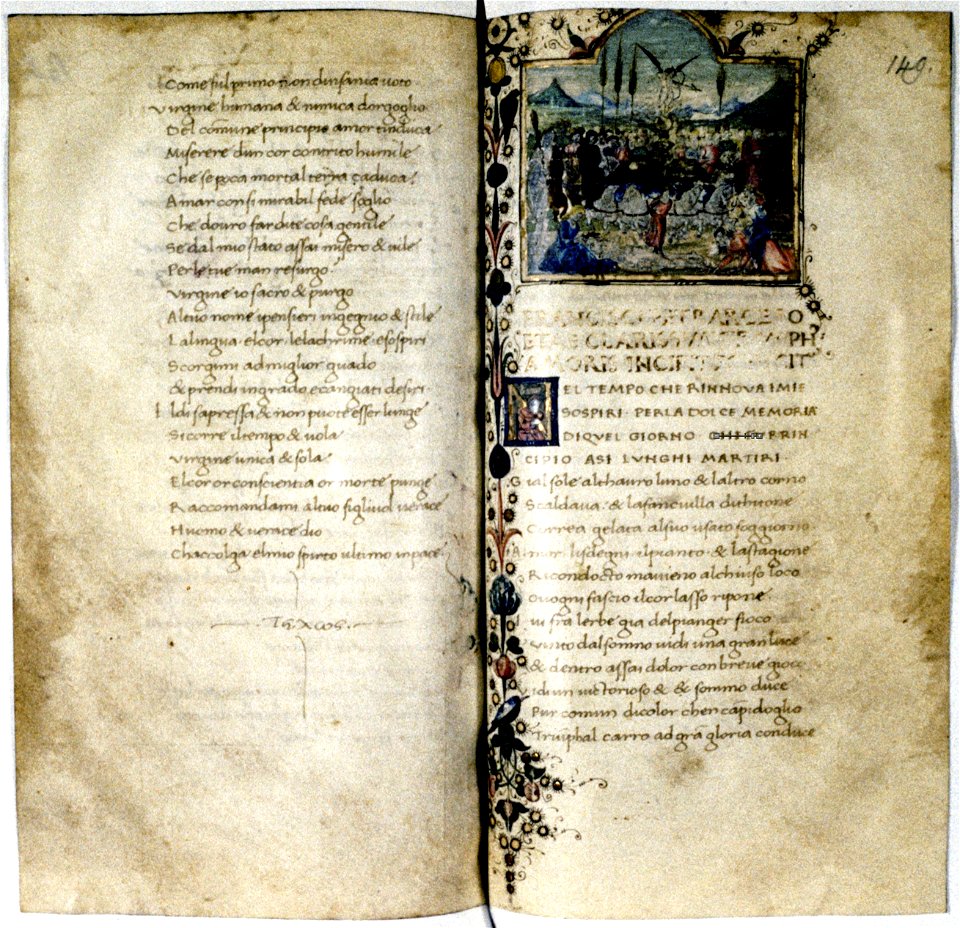 Come sul primo
Virgine humana & nimica dorgoglio
Del comune principio amor tinduca
Miserere dun cor contrito humile
Che se poca mortal terra caduca
Amar con si mirabil fede soglio
Che douro far di te cosa gentile
Se dal mio stato assai misero & uile
Per le tue man resurgo
Virgine io sacro & purgo
Al tuo nome ipensieri ingegnio & stile
La lingua elcor lelachrime esospiri
Scorgimi ad miglior guado
& prendi in grado ecangiati desiri
Il di sapressa & non puote esser lunge
Si corre il tempo & uola
Virgine unica & sola
El cor or conscientia or morte punge
Raccomandami al tuo figliuol uerace
Huomo & uerace dio
Chaccolga elmio spirto ultimo in pace
Τέλως
149.
FRANCISCI PETRARCE
ETAE CLARISS
AMORIS INCIPIT
NEL TEMPO CHE RINNOVA IMIE
SOSPIRI PER LA DOLCE MEMORIA
DI QVEL GIORNO CHE FV PRIN
CIPIO ASI LVNGHI MARTIRI
Gia il sole al thauro luno & laltro corno
Scaldaua & la fanciulla di thitone
Correa gelata al suo usato soggiorno
Amor li sdegni il pianto & la stagione
Ricondocto mauieno al chiuso loco
Ouogni fascio il cor lasso ripone
Iui fra lerbe gia del pianger fioco
Vinto dal sonno uidi una gran luce
& dentro assai dolor con breue gioco
Vidi un uictorioso & & sommo duce
Pur comun di color chen capidoglio
Triuphal carro ad grã gloria conduce